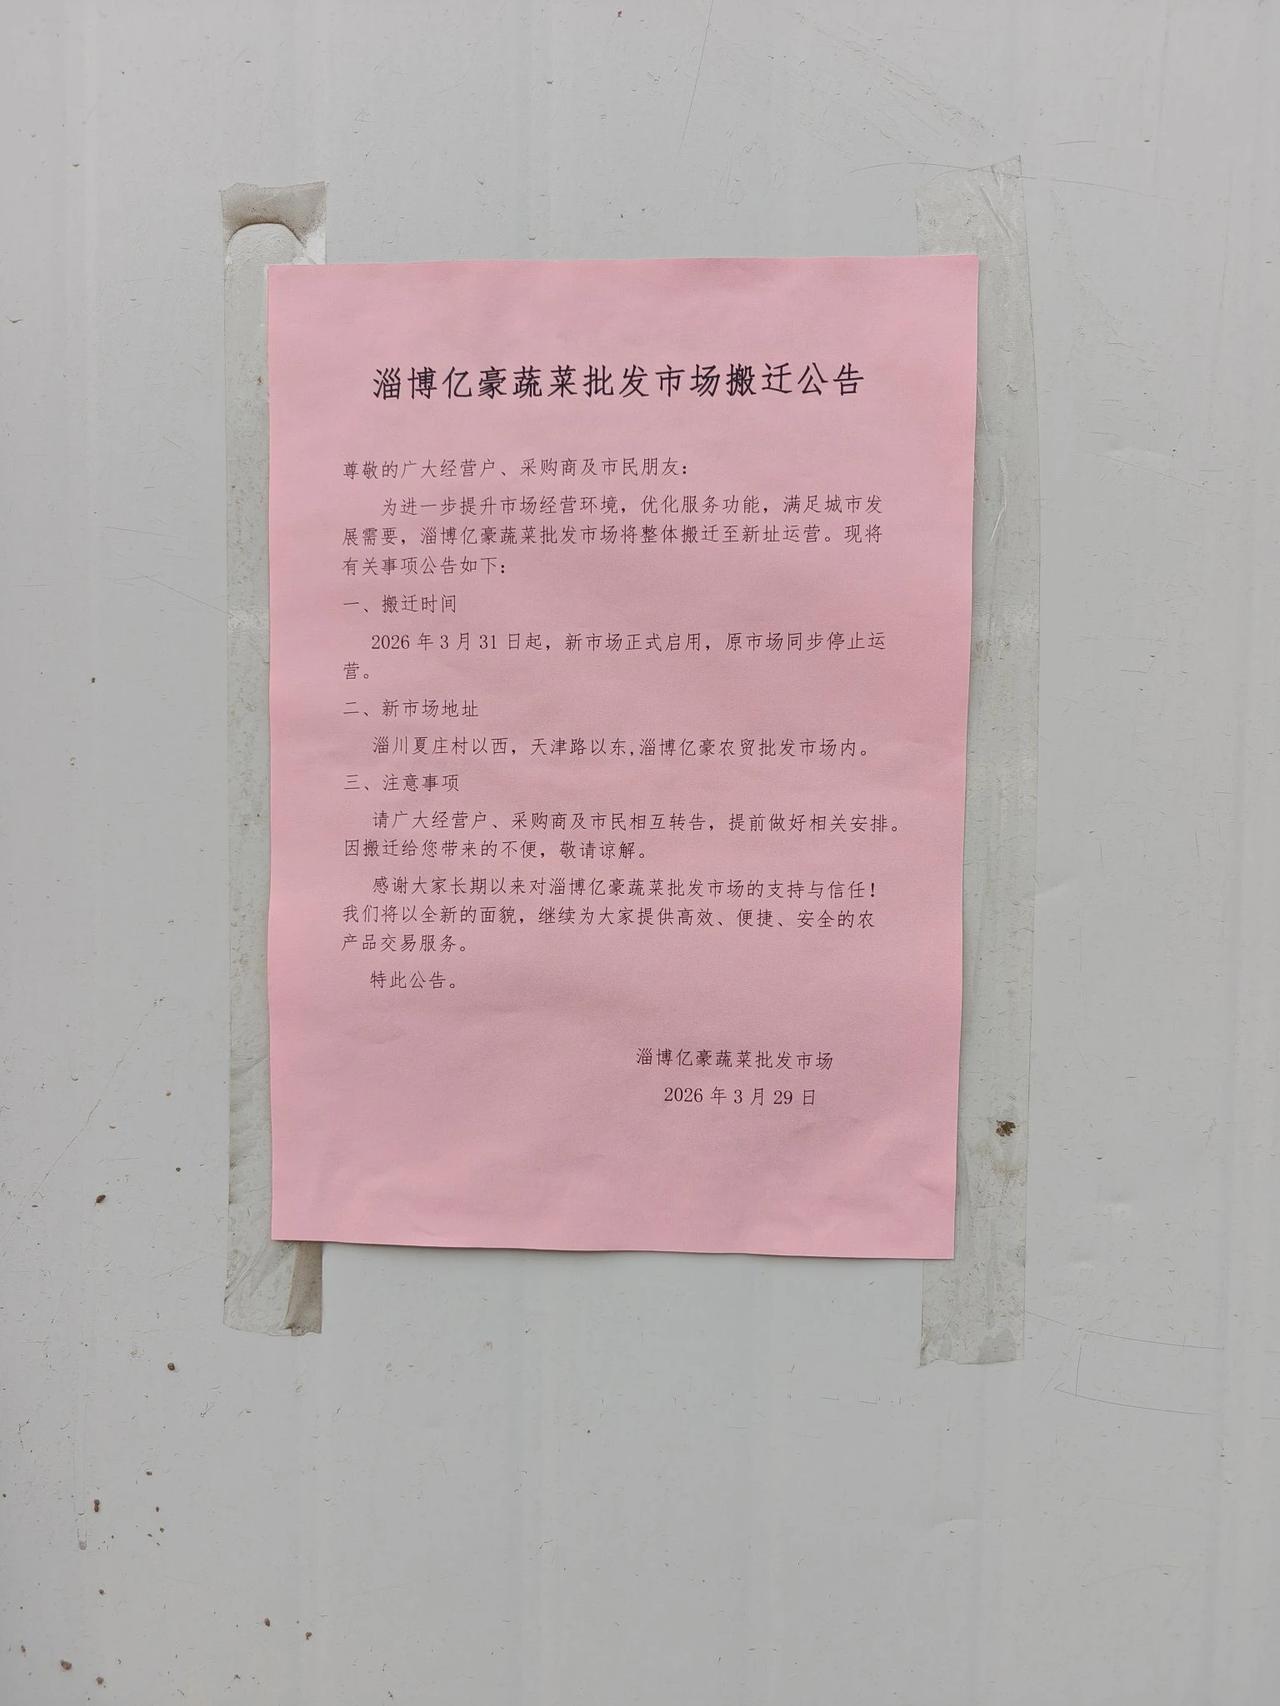 淄博亿豪蔬菜批发市场搬迁公告
尊敬的广大经营户、采购商及市民朋友：
为进一步提升市场经营环境，优化服务功能，满足城市发
展需要，淄博亿豪蔬菜批发市场将整体搬迁至新址运营。现将
有关事项公告如下：
一、搬迁时间
2026 年 3 月 31 日起，新市场正式启用，原市场同步停止运
营。
二、新市场地址
淄川夏庄村以西，天津路以东,淄博亿豪农贸批发市场内。
三、注意事项
请广大经营户、采购商及市民相互转告，提前做好相关安排。
因搬迁给您带来的不便，敬请谅解。
感谢大家长期以来对淄博亿豪蔬菜批发市场的支持与信任！
我们将以全新的面貌，继续为大家提供高效、便捷、安全的农
产品交易服务。
特此公告。
淄博亿豪蔬菜批发市场
2026 年 3 月 29 日